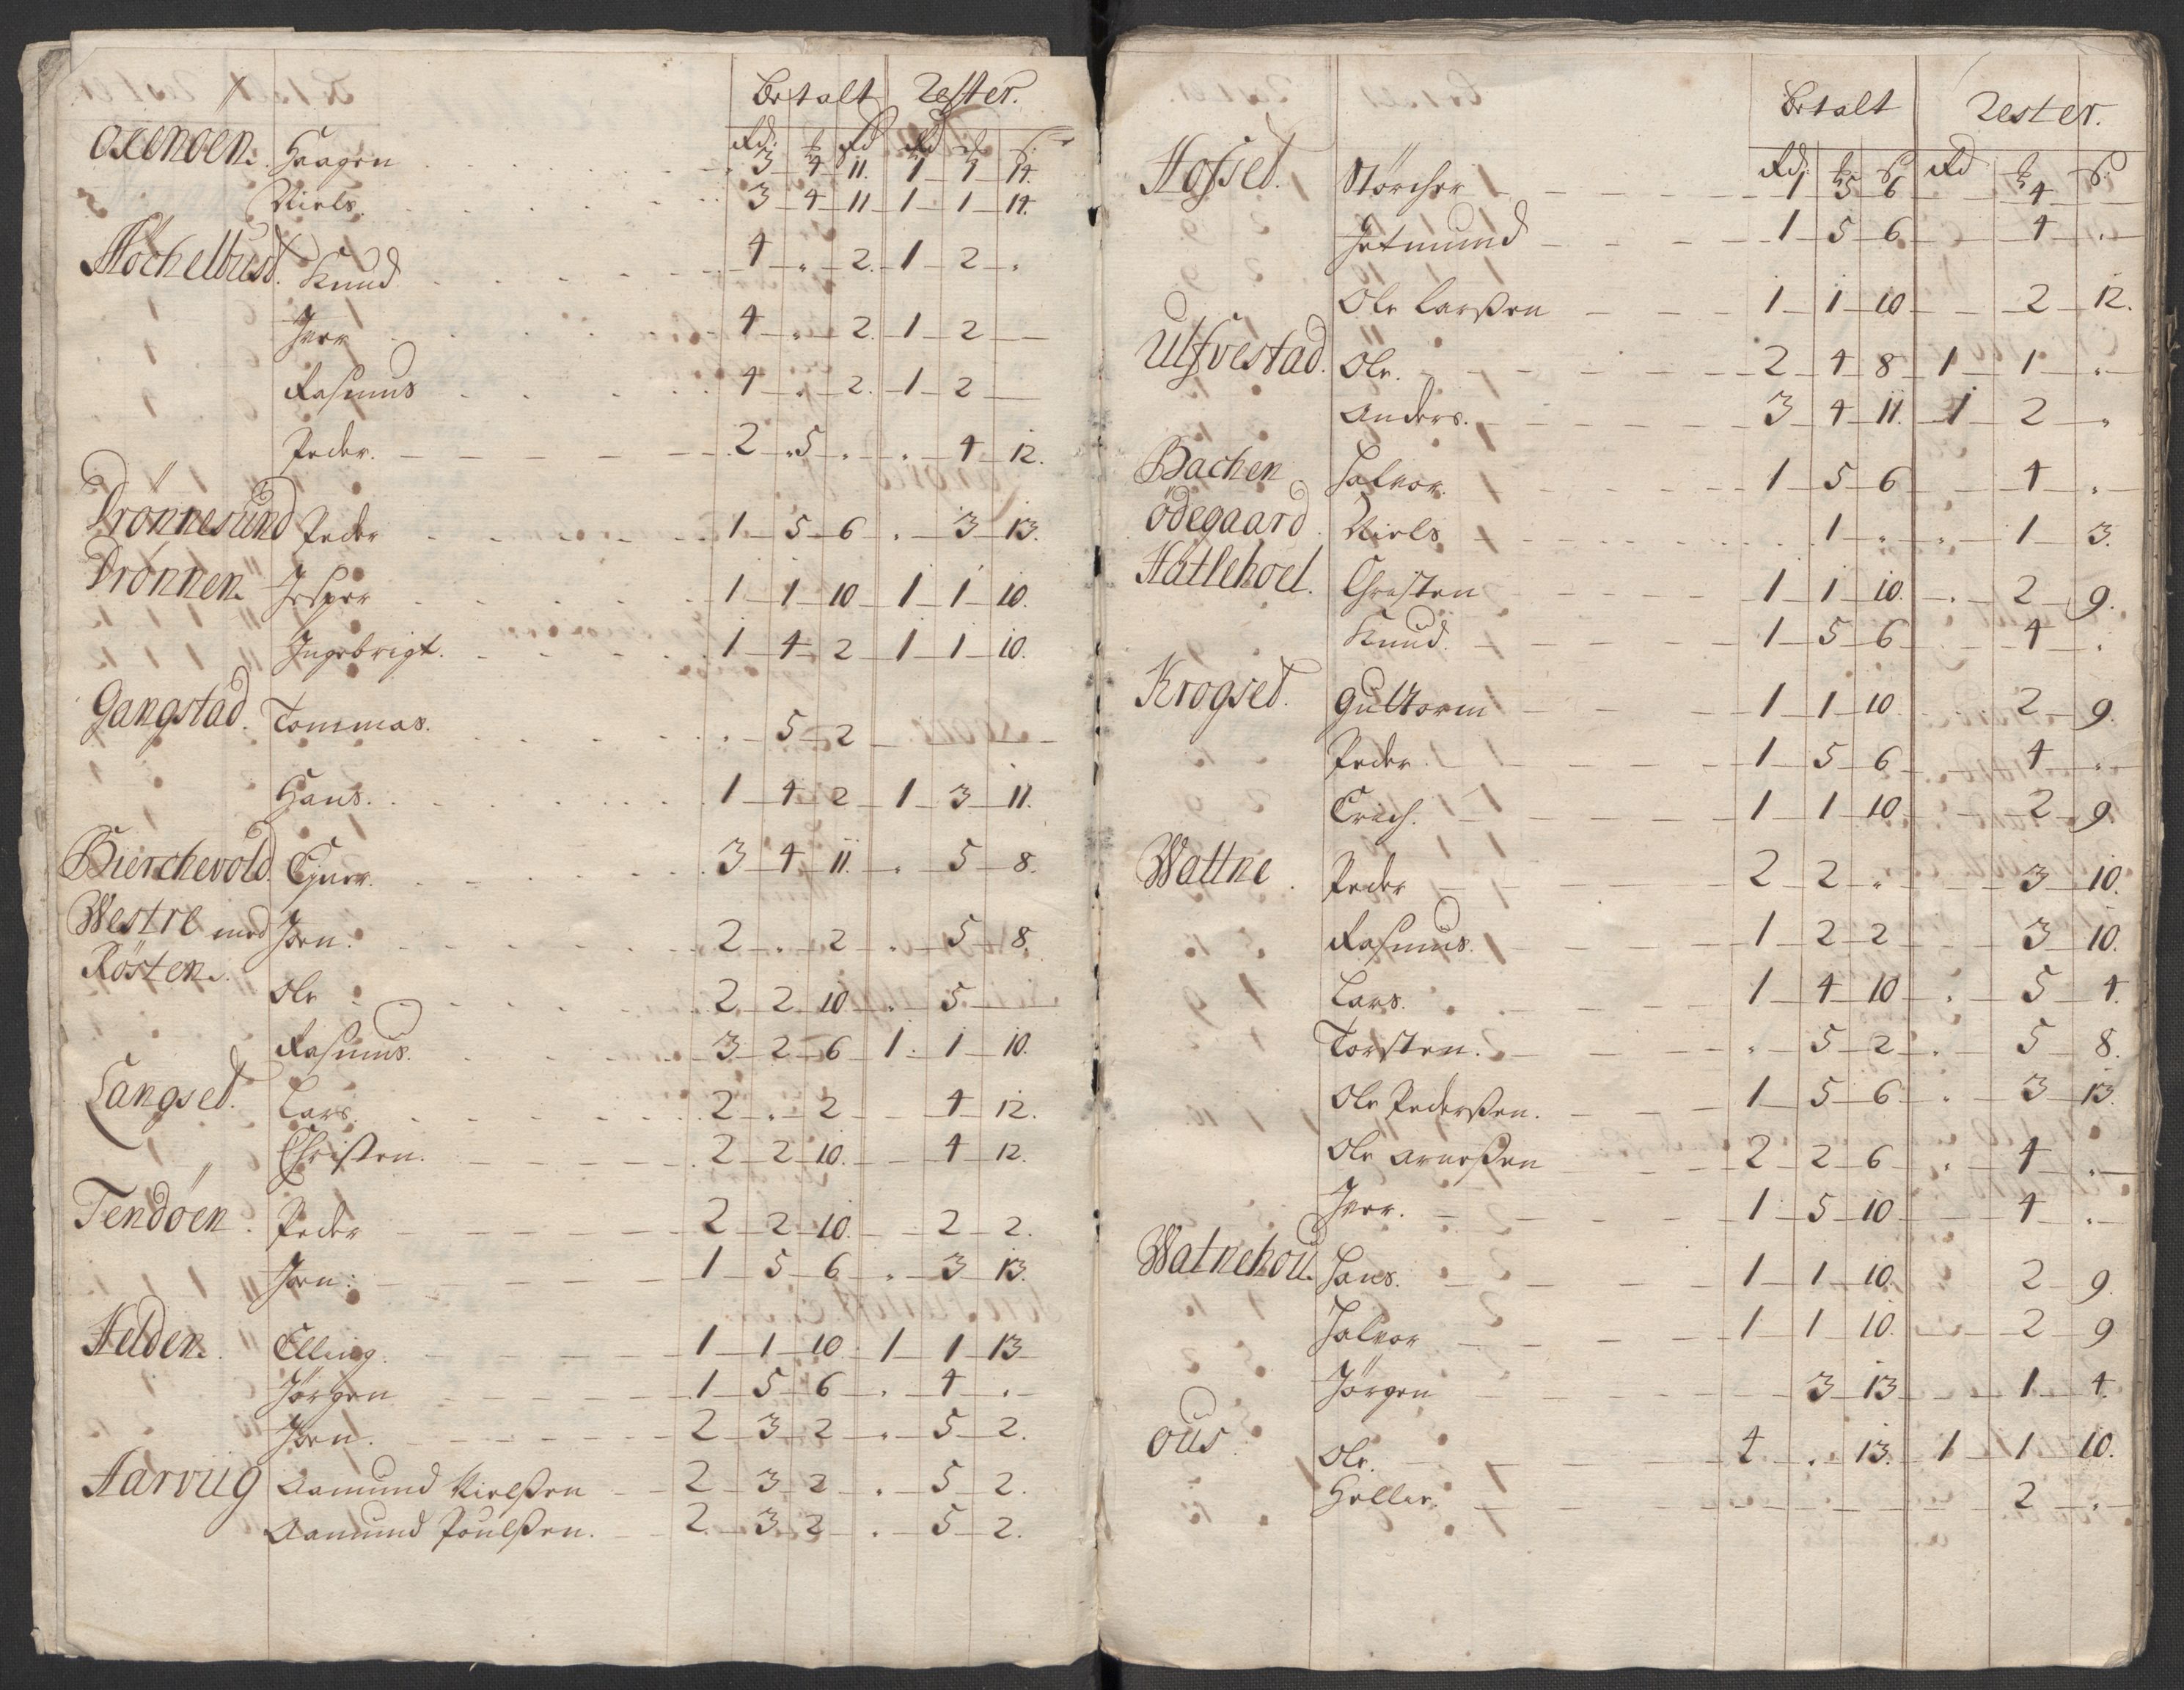 Betalt Rester.
Rd: ß Rd ß
Oxenöen. Haagen 3 4 11. 1 1 14.
Niels. 3 4 11 1 1 14.
Höchelbust. Knud 4 . 2. 1 2 .
Iver 4 . 2. 1 2
Rasmus 4 . 2. 1 2
Peder. 2 5 . . 4 12.
Drönnesund Peder 1 5 6 . 3 13.
Drönnen. Jesper 1 1 10 1 1 10.
Ingebrigt. 1 4 2 1 1 10.
Gangstad. Tommas. . 5 2
Hans. 1 4 2 1 3 11.
Bierchevold. 3 4 11. . 5 8.
Westre med Joen. 2 . 2 . 5 8.
Rösten. Ole 2 2 10 . 5
Rasmus. 3 2 6 1 1 10.
Langsed. Lars. 2 . 2 4 12.
Christen. 2 2 10. 4 12.
Tendöen. Peder 2 2 10. 2 2.
Joen: 1 5 6 . 3 13.
Helden. Elling. 1 1 10 1 1 13
Jörgen 1 5 6 . 4 .
Joen. 2 3 2 . 5 2.
Harviig Aamund Nielßen 2 3 2 . 5 2.
Aamund Poulßen. 2 3 2 . 5 2.
Betalt Rester.
Rd: ß Rd ß
Hofsed. Störcher 1 5 6 4
Jetmund 1 5 6 4 .
Ole Larßen 1 1 10 2 12.
Ulfvestad. Ole. 2 4 8 1 1 .
Anders. 3 4 11. 1 2 .
Bachen Halvor. 1 5 6 4 .
ödegaard. Niels 1 . . 1 3.
Hatlehoel. Christen 1 1 10. . 2 9.
Knud. 1 5 6 4 .
Krogsed. Guttorm 1 1 10. 2 9.
Peder. 1 5 6 4 .
Erich. 1 1 10 2 9
Wattne. Peder 2 2 . 3 10.
Rasmus. 1 2 2 3 10.
Lars. 1 4 10 . 5 4.
Torsten. . 5 2 . 5 8.
Ole Pederßen. 1 5 6 . 3 13.
Ole Arneßen 2 2 6 . 4 .
Iver. 1 5 10 4 .
Watnehou. Hans. 1 1 10. 2 9.
Halvor 1 1 10. 2 9
Jörgen 3 13 1 4.
Ous. Ole. 4 . 13. 1 1 10.
Helle. 2 .